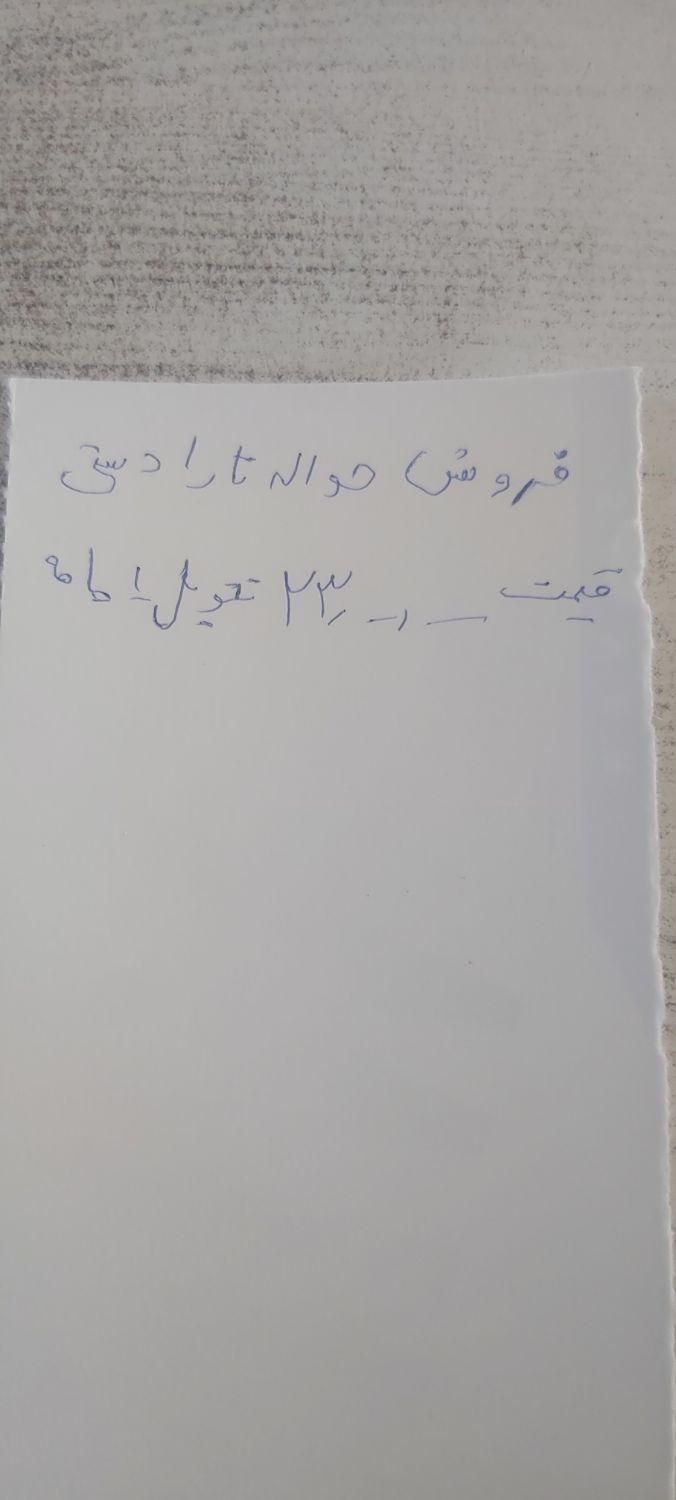 فروش حواله تارا دستی
قیمت ۲۳,۰۰۰,۰۰۰ تحویل ۱ ماهه